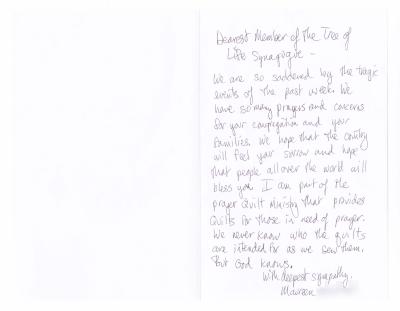 Dearest Member of the Tree of
Life Synagogue –
We are so saddened by the tragic
events of the past week. We
have so many prayers and concerns
for your congregation and your
families. We hope that the country
will feel your sorrow and hope
that people all over the world will
bless you. I am part of the
prayer Quilt Ministry that provides
Quilts for those in need of prayer.
We never know who the quilts
are intended for as we sew them.
But God knows.
With deepest sympathy,
Maureen